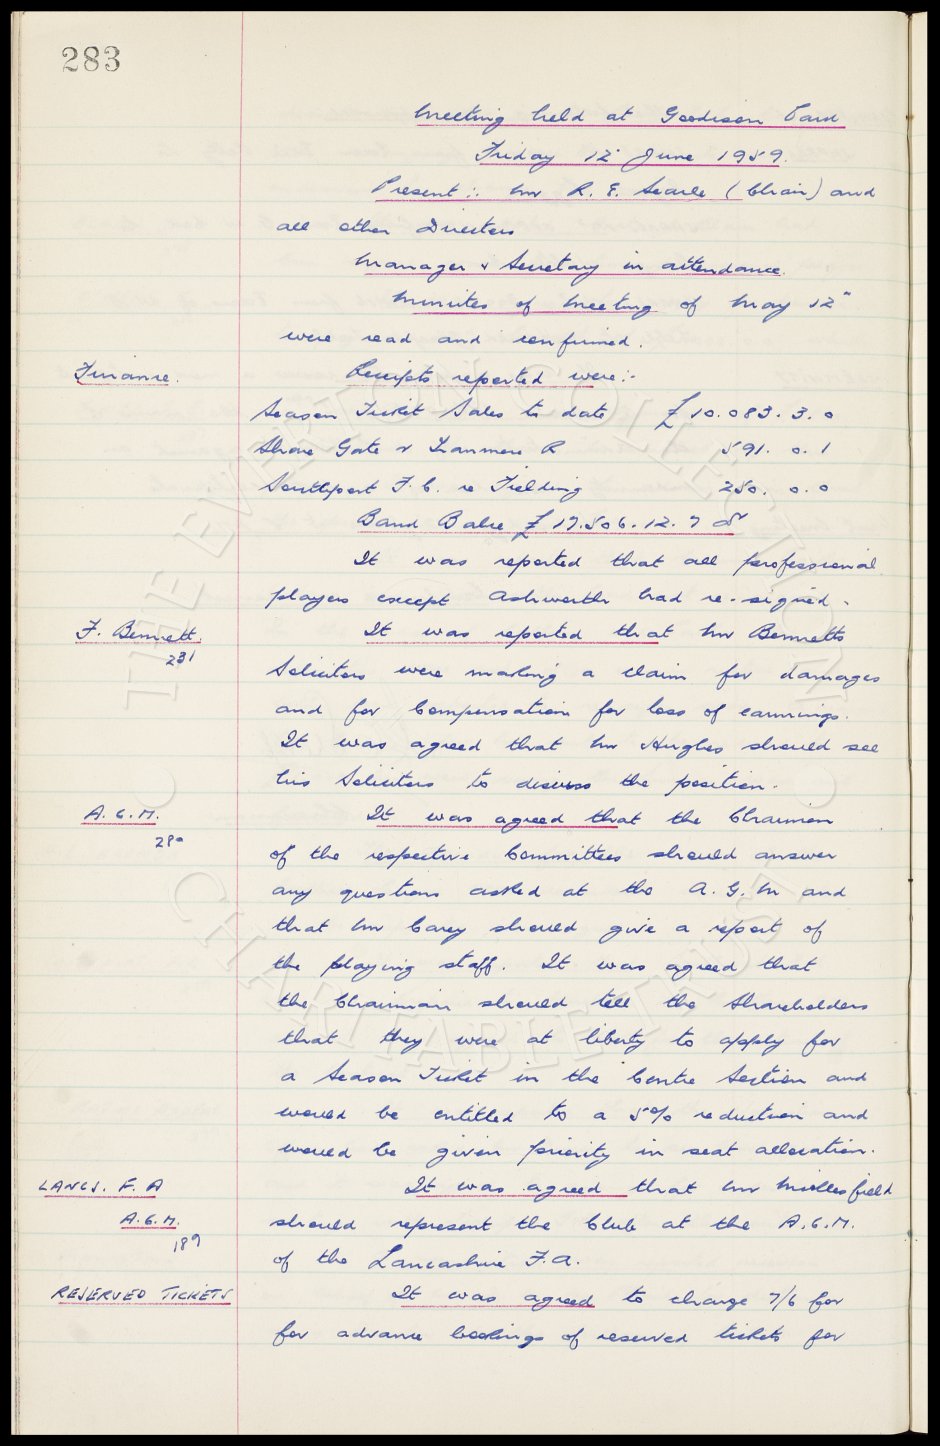 283
Meeting held at Goodison Park
Friday 12" June 1959.
Present:. Mr R. E. Searle (Chair) and
all other Directors
Manager & Secretary in attendance.
Minutes of Meeting of May 12"
were read and confirmed.
Finance.
Receipts reported were:-
Season Ticket Sales to date £10.083.3.0
Share Gate v Tranmere R 591.0.1
Southport F.C. re Fielding 250.0.0
Bank Balce £17.506.12.7
It was reported that all professional
players except Ashworth had re-signed.
F. Bennett.
231
It was reported that Mr Bennetts
Solicitors were making a claim for damages
and for Compensation for loss of earnings.
It was agreed that Mr Hughes should see
his Solicitors to discuss the position.
A.G.M.
280
It was agreed that the Chairmen
of the respective Committees should answer
any questions asked at the A.G.M and
that Mr Carey should give a report of
the playing staff. It was agreed that
the Chairman should tell the Shareholders
that they were at liberty to apply for
a Season Ticket in the Centre Section and
would be entitled to a 5% reduction and
would be given priority in seat allocation.
LANCS. F.A
A.G.M.
189
It was agreed that Mr Micklesfield
should represent the Club at the A.G.M.
of the Lancashire F.A.
RESERVED TICKETS
It was agreed to charge 7/6 for
for advance bookings of reserved tickets for
© THE EVERTON COLLECTION
CHARITABLE TRUST